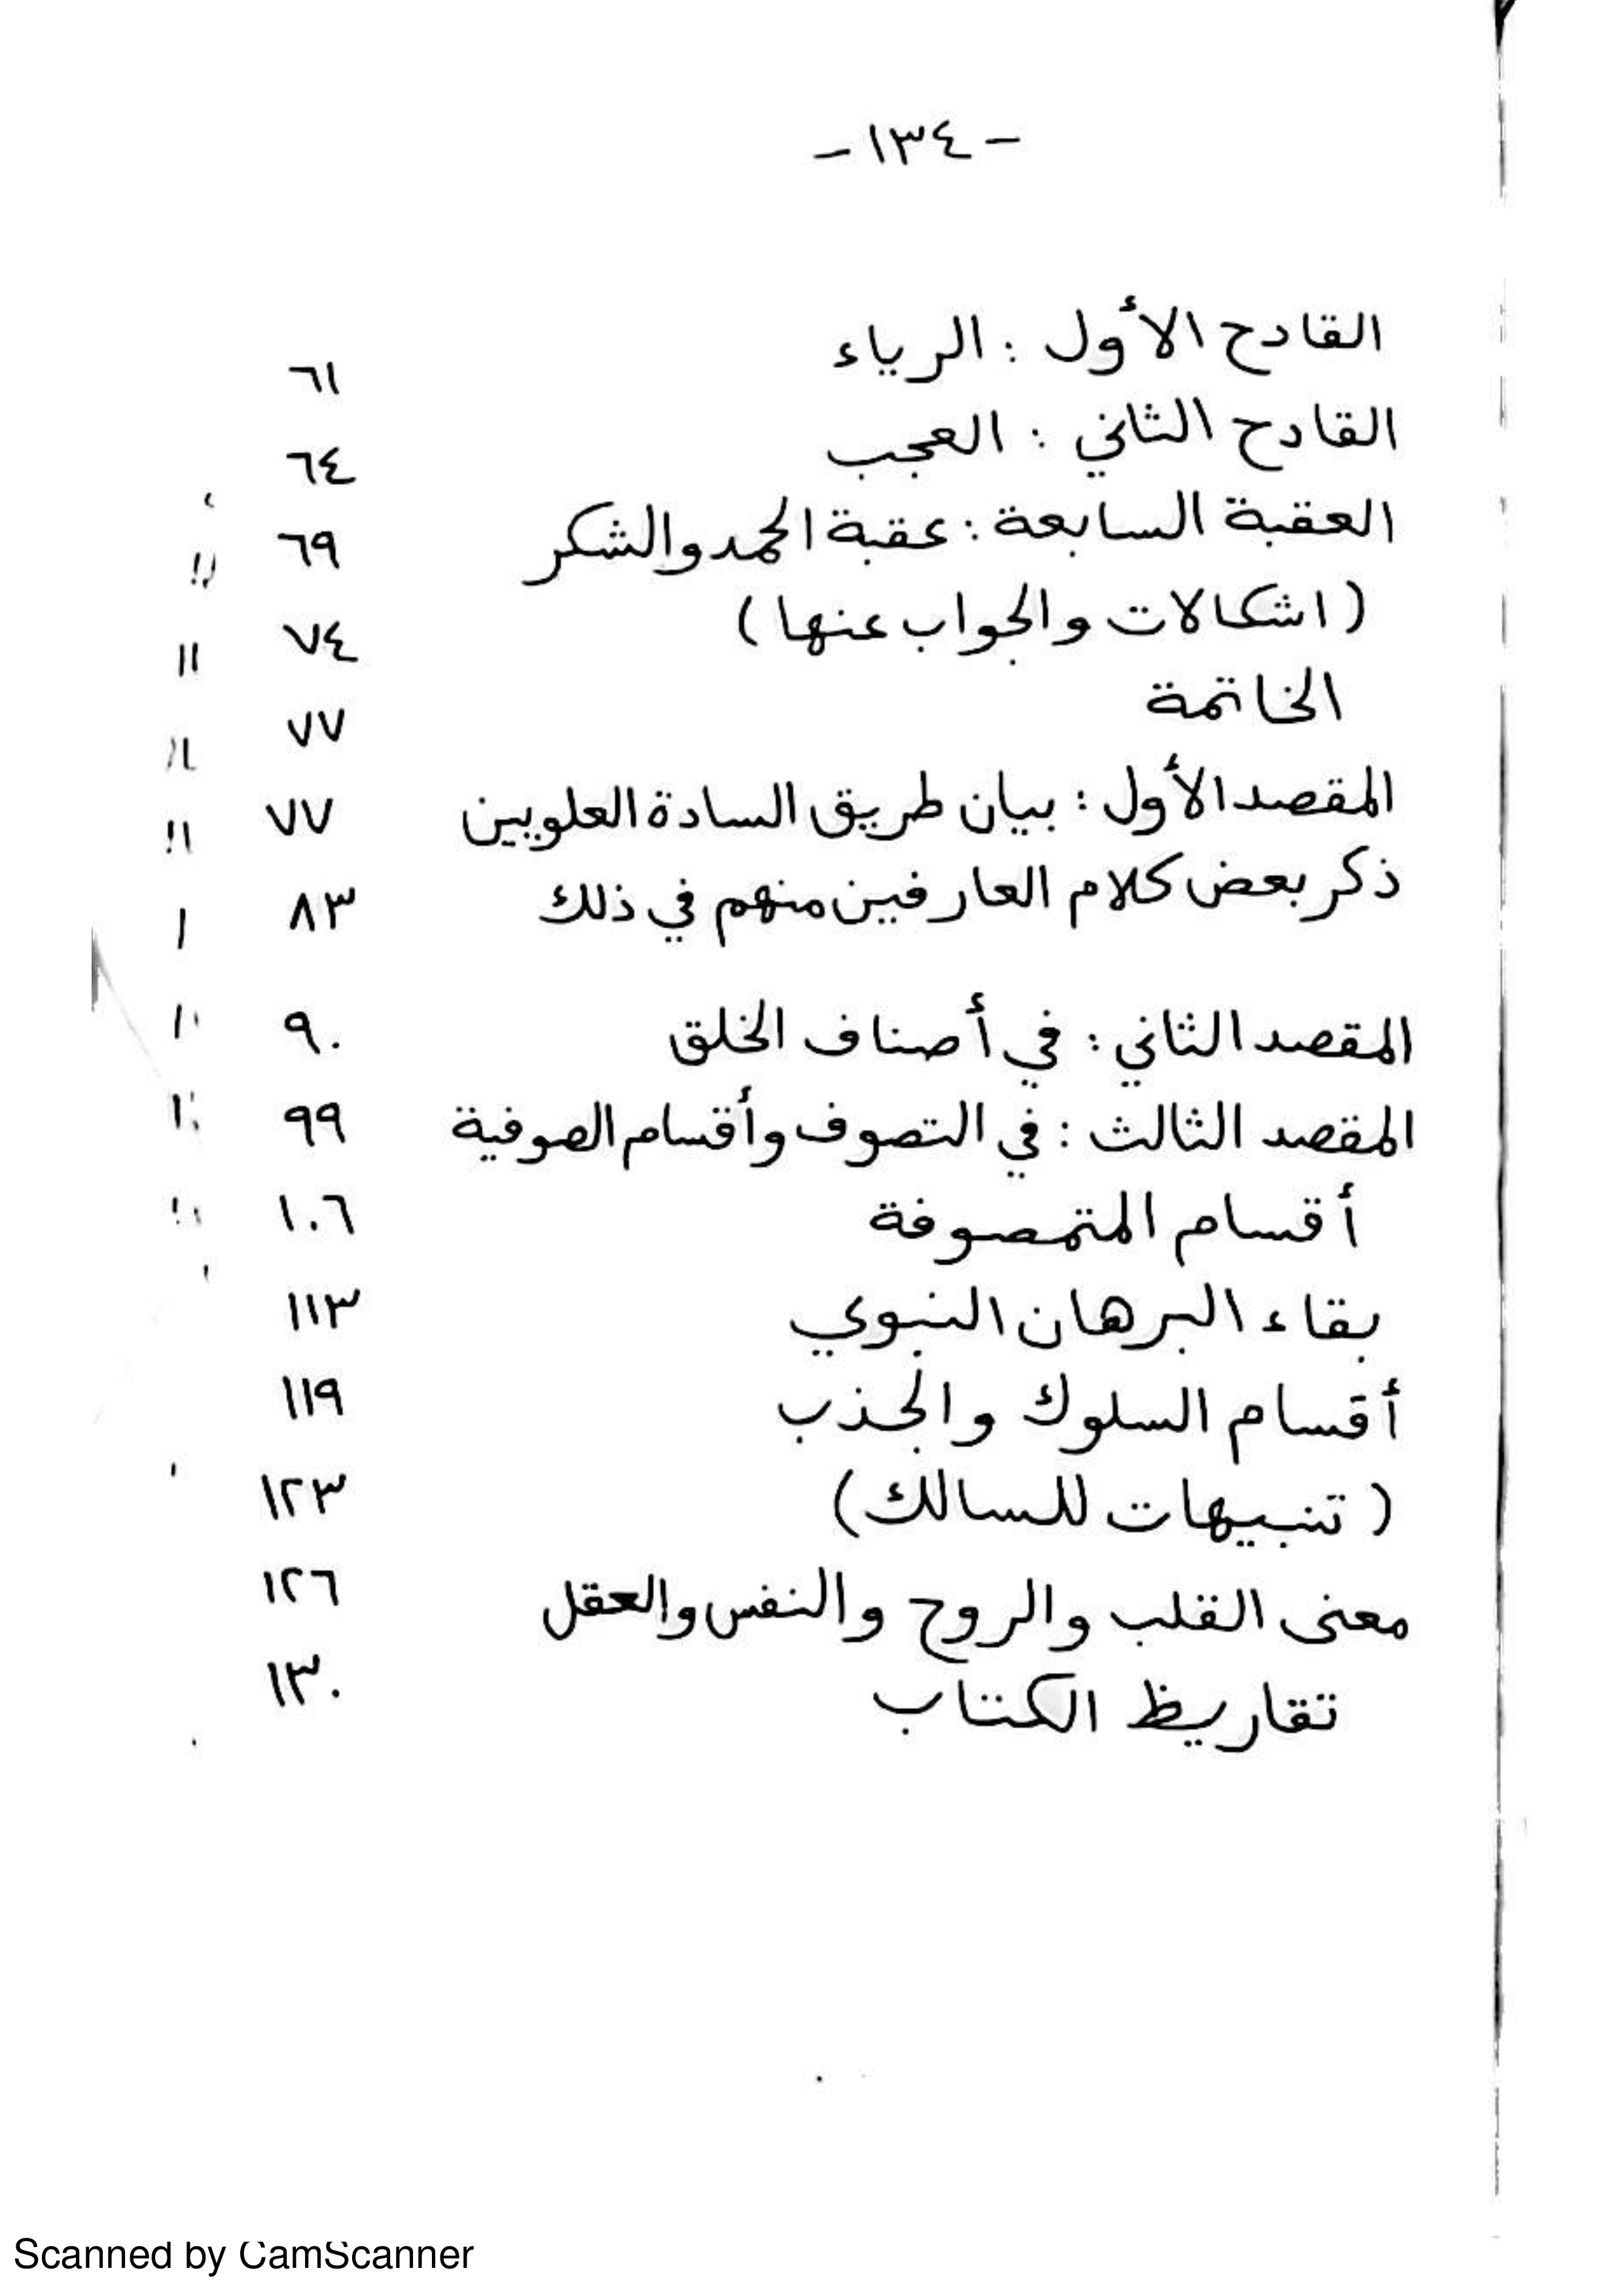 - ١٣٤ -
القادح الأول : الرياء ٦١
القادح الثاني : العجب ٦٤
العقبة السابعة : عقبة الحمد والشكر ٦٩
( اشكالات والجواب عنها ) ٧٤
الخاتمة ٧٧
المقصد الأول : بيان طريق السادة العلويين ٧٧
ذكر بعض كلام العارفين منهم في ذلك ٨٣
المقصد الثاني : في أصناف الخلق ٩٠
المقصد الثالث : في التصوف وأقسام الصوفية ٩٩
أقسام المتمصوفة ١٠٦
بقاء البرهان النبوي ١١٣
أقسام السلوك والجذب ١١٩
( تنبيهات للسالك ) ١٢٣
معنى القلب والروح والنفس والعقل ١٢٦
تقاريظ الكتاب ١٣٠
Scanned by CamScanner